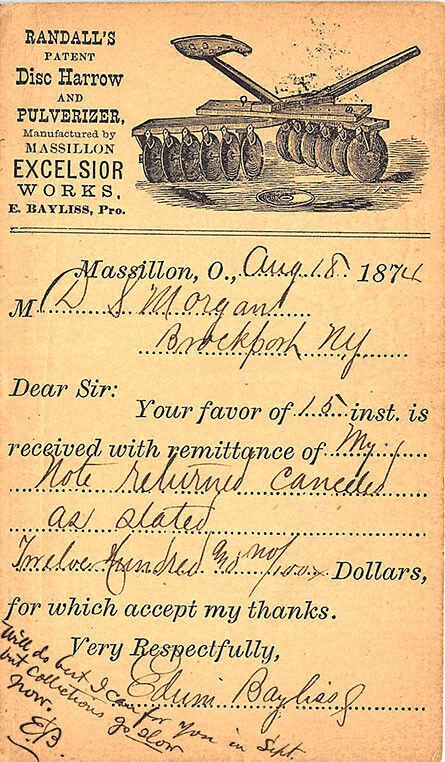 RANDALL'S
PATENT
Disc Harrow
AND
PULVERIZER,
Manufactured by
MASSILLON
EXCELSIOR
WORKS,
E. BAYLISS, Pro.
Massillon, O., Aug 18 1874
M D S Morgan
Brockport NY
Dear Sir:
Your favor of 15 inst. is
received with remittance of My
Note returned canceled
as stated
Twelve Hundred and no/100 Dollars,
for which accept my thanks.
Very Respectfully,
Edwin Bayliss
Will do best I can for you in Sept.
but collections go slow
now.
E.B.